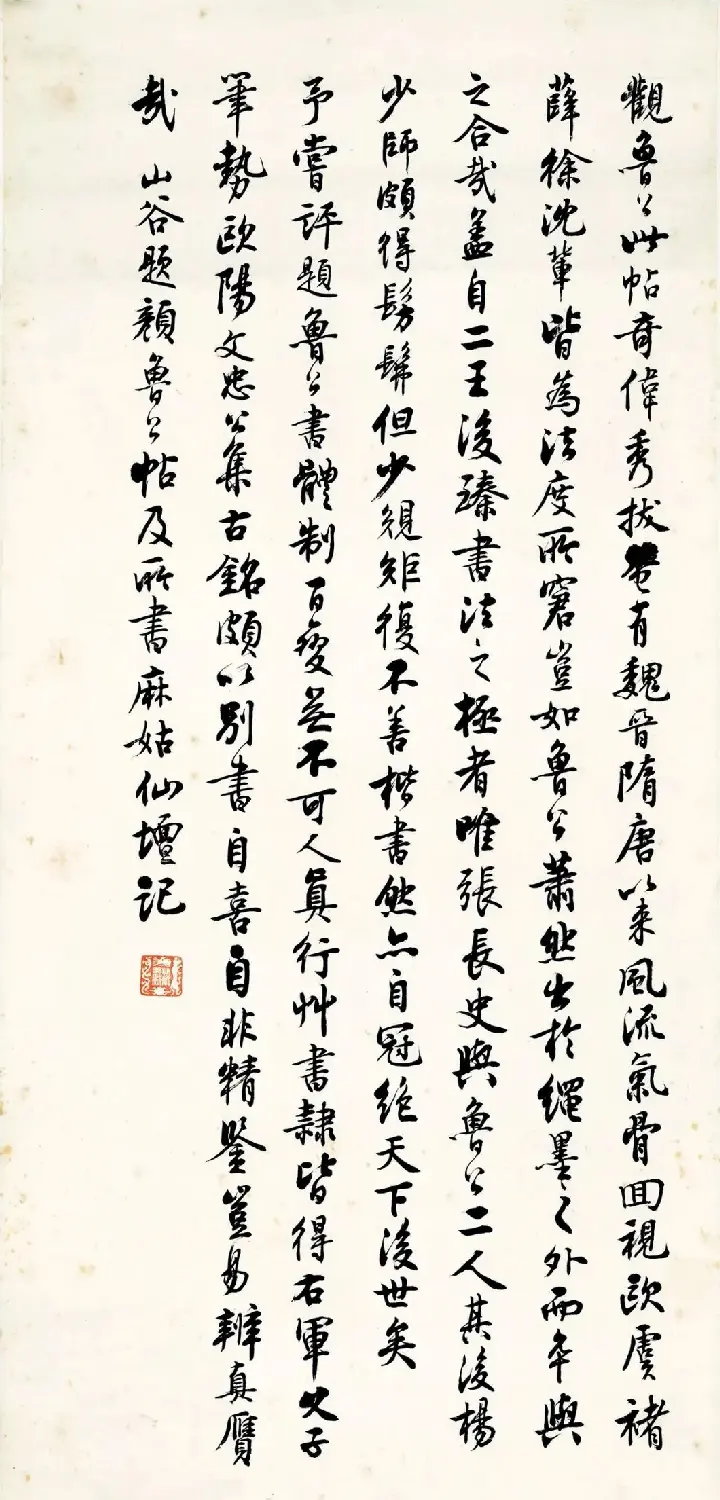 觀魯公此帖奇偉秀拔奄有魏晉隋唐以來風流氣骨回視歐虞褚
薛徐沈輩皆為法度所窘豈如魯公蕭然出於繩墨之外而卒與
之合哉蓋自二王後臻書法之極者唯張長史與魯公二人其後楊
少師頗得髣髴但少規矩復不善楷書然亦自冠絕天下後世矣
予嘗評題魯公書體制百變無不可人真行艸書隸皆得右軍父子
筆勢歐陽文忠公集古銘頗以別書自喜自非精鑒豈易辨真贋
哉 山谷題顏魯公帖及所書麻姑仙壇記